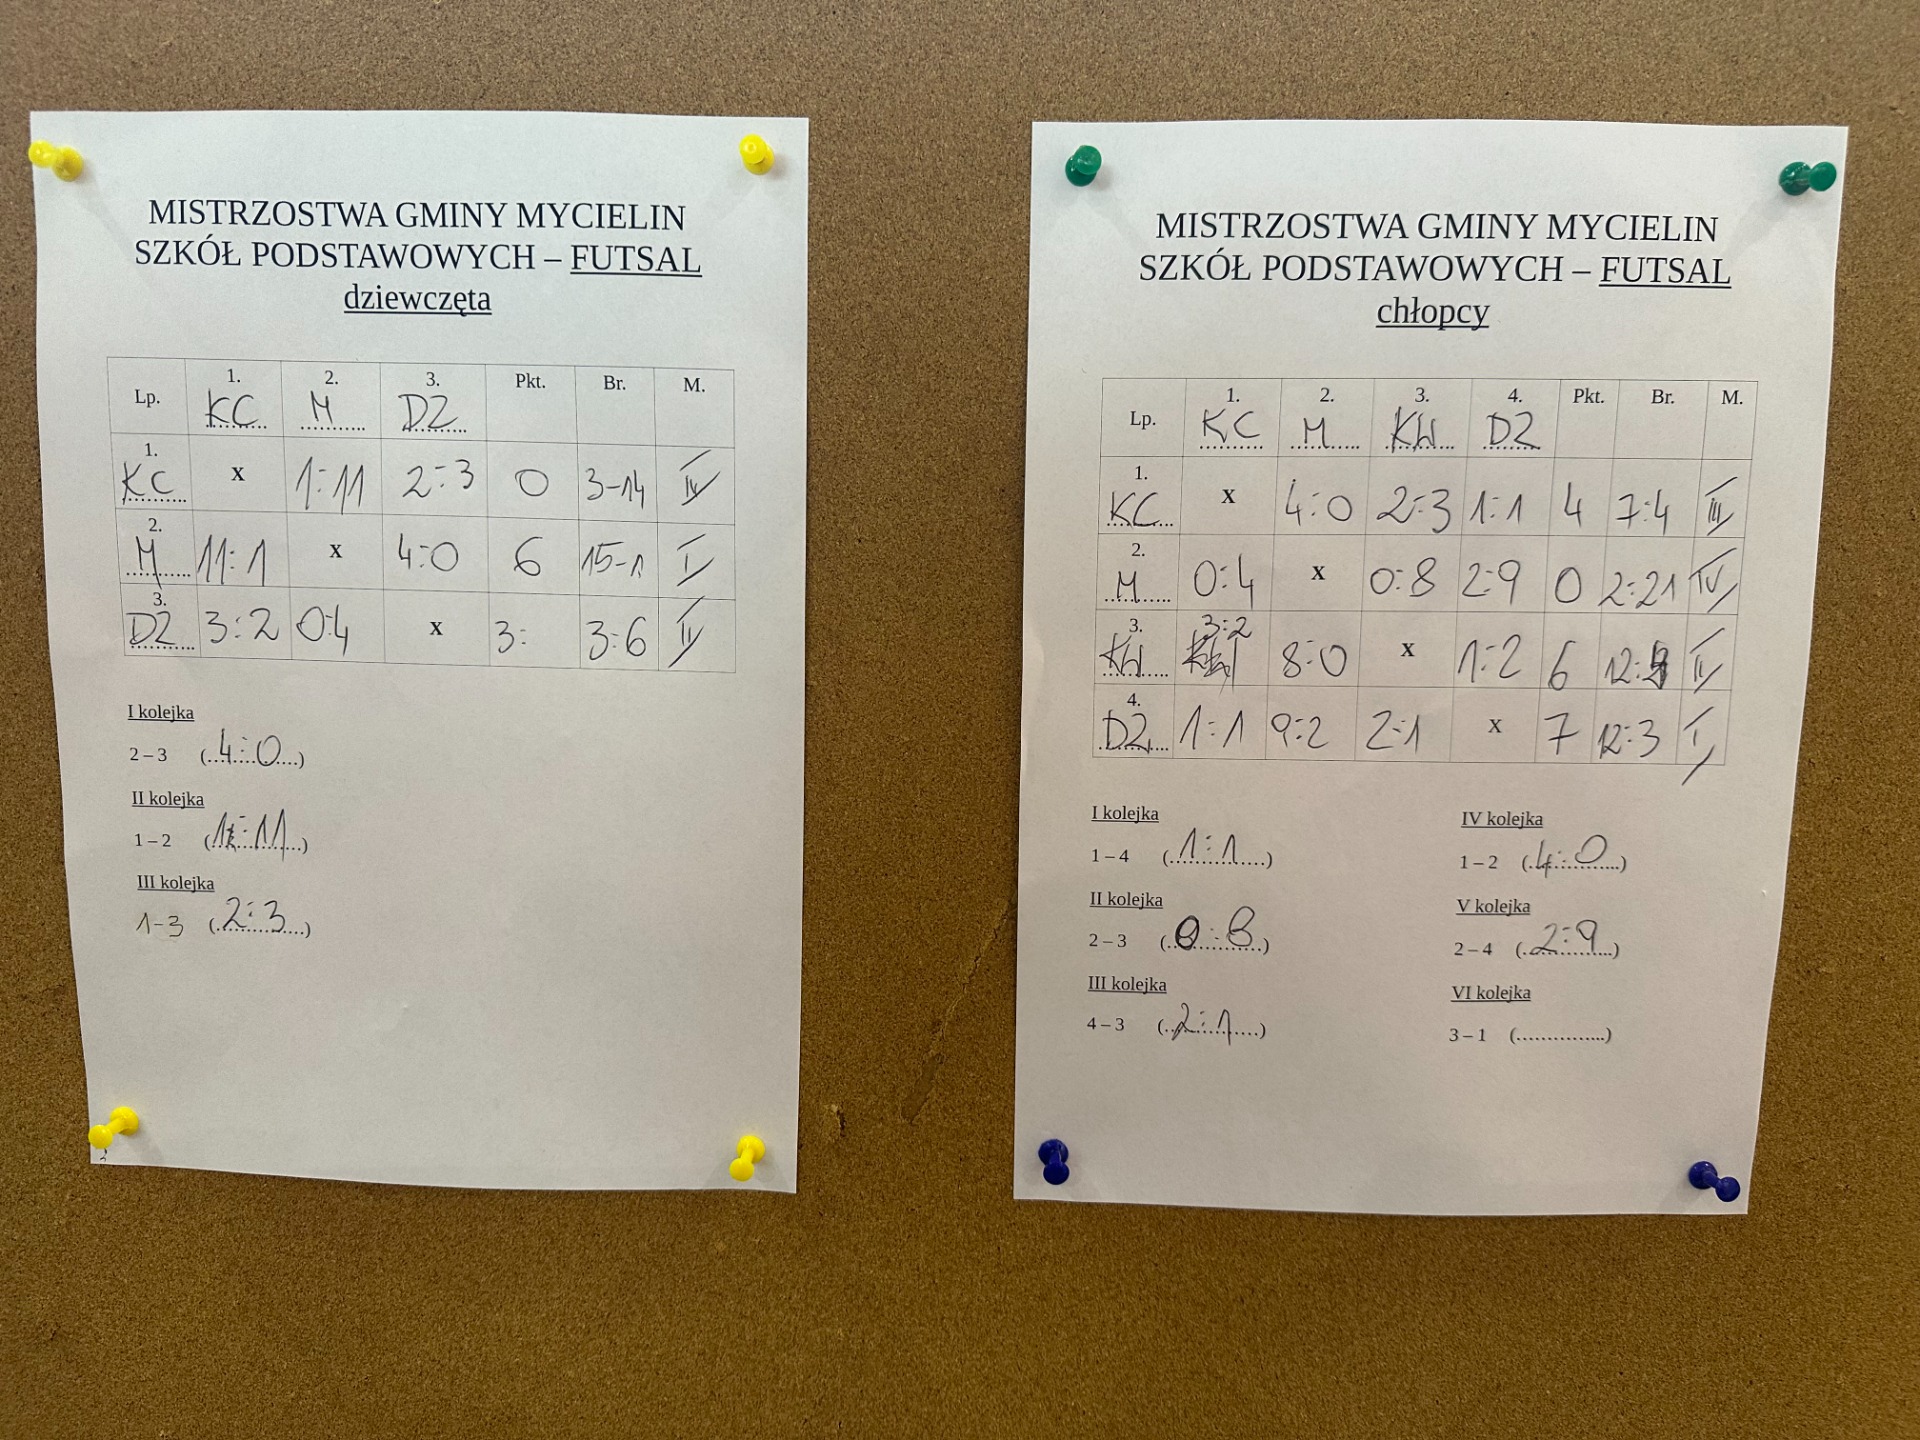 MISTRZOSTWA GMINY MYCIELIN
SZKÓŁ PODSTAWOWYCH – FUTSAL
dziewczęta
Lp. 1. KC 2. M 3. DZ Pkt. Br. M.
1. KC x 1:11 2:3 0 3-14
2. M 11:1 x 4:0 6 15-1 I
3. DZ 3:2 0:4 x 3: 3:6 II
I kolejka
2 – 3 (4:0)
II kolejka
1 – 2 (1:11)
III kolejka
1-3 (2:3)
MISTRZOSTWA GMINY MYCIELIN
SZKÓŁ PODSTAWOWYCH – FUTSAL
chłopcy
Lp. 1. KC 2. M 3. KW 4. DZ Pkt. Br. M.
1. KC x 4:0 2:3 1:1 4 7:4 III
2. M 0:4 x 0:8 2:9 0 2:21 IV
3. KW 3:2 8:0 x 1:2 6 II
4. DZ 1:1 9:2 2:1 x 7 12:3 I
I kolejka
1 – 4 (1:1)
II kolejka
2 – 3 (0:8)
III kolejka
4 – 3 (2:1)
IV kolejka
1 – 2 (4:0)
V kolejka
2 – 4 (2:9)
VI kolejka
3 – 1 (...............)